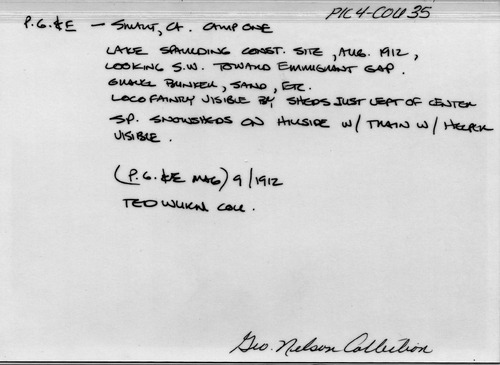 PIC4-COU35
P.G.&E — SMART, CA. CAMP ONE
LAKE SPAULDING CONST. SITE, AUG. 1912,
LOOKING S.W. TOWARD EMMIGRANT GAP.
GRAVEL BUNKER, SAND, ETC.
LOCO FAINTLY VISIBLE BY SHEDS JUST LEFT OF CENTER
SP. SNOWSHEDS ON HILLSIDE W/ TRAIN W/ HELPER
VISIBLE.
(P.G.&E MAG) 9/1912
TED COLL.
Geo. Nelson Collection